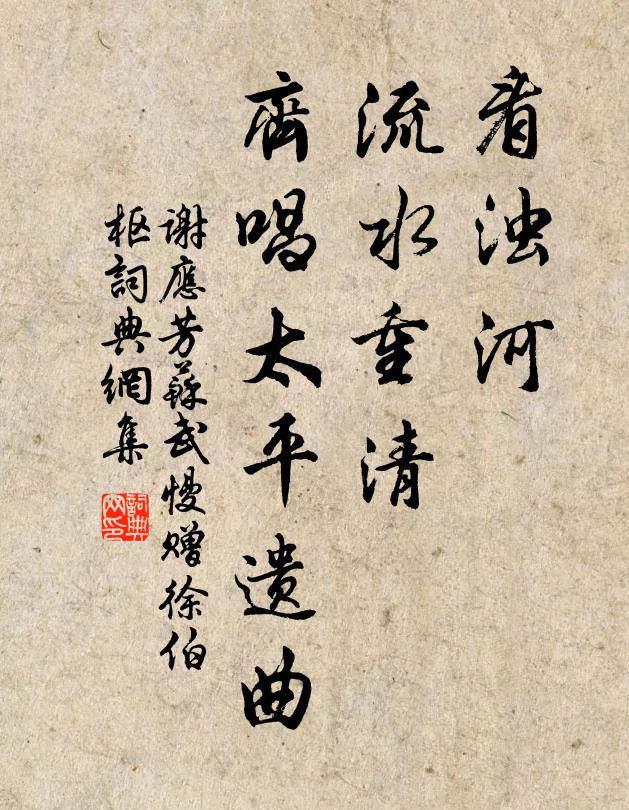 看浊河
流水重清
齊唱太平遗曲
谢應芳蘇武慢赠徐伯
枢詞典網集
詞典网印